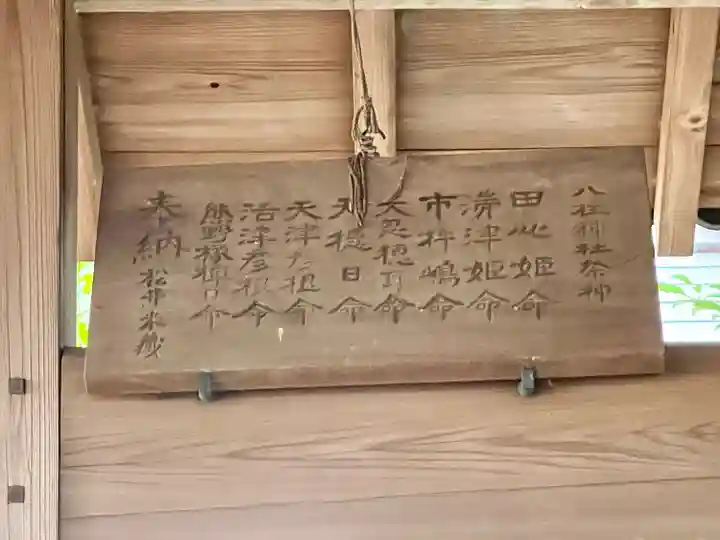 八社神社祭神
田心姫命
湍津姫命
市杵嶋命
天忍穂耳命
天穂日命
天津彦根命
活津彦根命
熊野櫲樟日命
奉納 松井米蔵